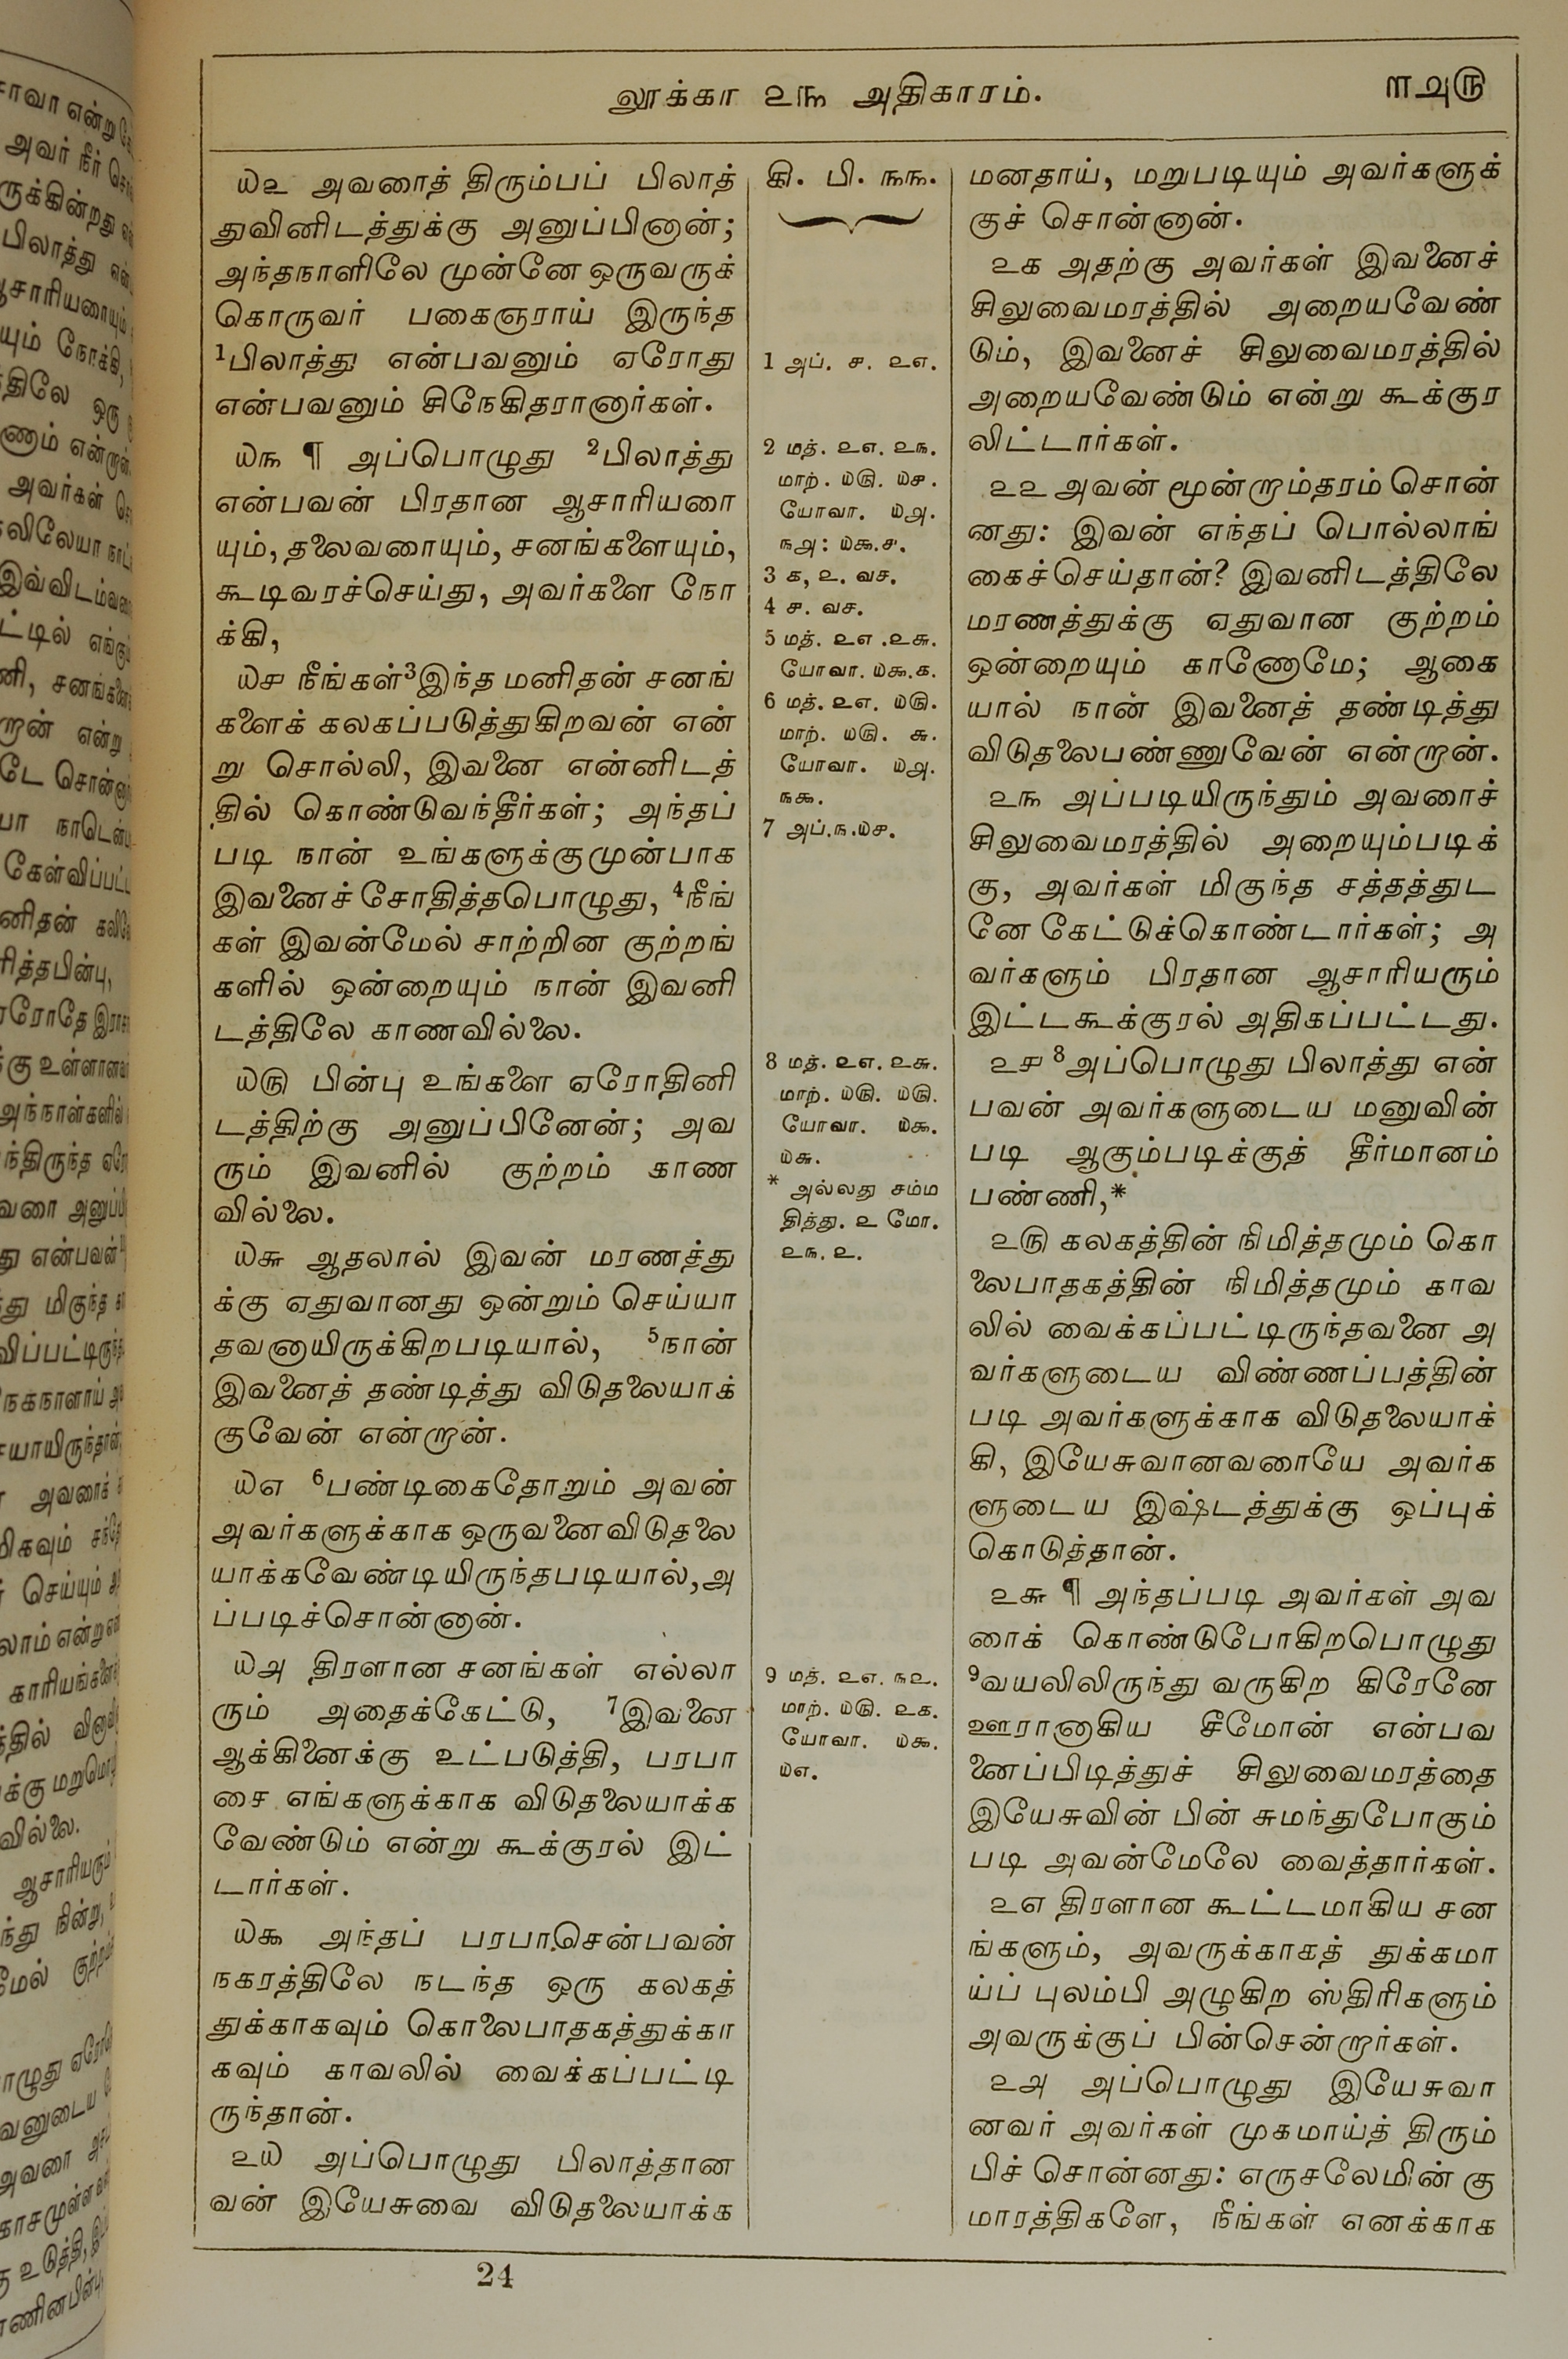 லூக்கா ௨௩ அதிகாரம்.
௱௮௫
௰௨ அவரைத் திரும்பப் பிலாத்
துவினிடத்துக்கு அனுப்பினான்;
அந்தநாளிலே முன்னே ஒருவருக்
கொருவர் பகைஞராய் இருந்த
1பிலாத்து என்பவனும் ஏரோது
என்பவனும் சிநேகிதரானார்கள்.
௰௩ ¶ அப்பொழுது 2பிலாத்து
என்பவன் பிரதான ஆசாரியரை
யும், தலைவரையும், சனங்களையும்,
கூடிவரச்செய்து, அவர்களை நோ
க்கி,
௰௪ நீங்கள்3இந்த மனிதன் சனங்
களைக் கலகப்படுத்துகிறவன் என்
று சொல்லி, இவனை என்னிடத்
தில் கொண்டுவந்தீர்கள்; அந்தப்
படி நான் உங்களுக்குமுன்பாக
இவனைச் சோதித்தபொழுது, 4நீங்
கள் இவன்மேல் சாற்றின குற்றங்
களில் ஒன்றையும் நான் இவனி
டத்திலே காணவில்லை.
௰௫ பின்பு உங்களை ஏரோதினி
டத்திற்கு அனுப்பினேன்; அவ
ரும் இவனில் குற்றம் காண
வில்லை.
௰௬ ஆதலால் இவன் மரணத்து
க்கு ஏதுவானது ஒன்றும் செய்யா
தவனாயிருக்கிறபடியால், 5நான்
இவனைத் தண்டித்து விடுதலையாக்
குவேன் என்றான்.
௰௭ 6பண்டிகைதோறும் அவன்
அவர்களுக்காக ஒருவனைவிடுதலை
யாக்கவேண்டியிருந்தபடியால்,அ
ப்படிச்சொன்னான்.
௰௮ திரளான சனங்கள் எல்லா
ரும் அதைக்கேட்டு, 7இவனை
ஆக்கினைக்கு உட்படுத்தி, பரபா
சை எங்களுக்காக விடுதலையாக்க
வேண்டும் என்று கூக்குரல் இட்
டார்கள்.
௰௯ அந்தப் பரபாசென்பவன்
நகரத்திலே நடந்த ஒரு கலகத்
துக்காகவும் கொலைபாதகத்துக்கா
கவும் காவலில் வைக்கப்பட்டி
ருந்தான்.
௨௰ அப்பொழுது பிலாத்தான
வன் இயேசுவை விடுதலையாக்க
கி. பி. ௩௩.
1 அப். ௪. ௨௭.
2 மத். ௨௭. ௨௩.
மாற். ௰௫. ௰௪.
யோவா. ௰௮.
௩௮: ௰௯.௪.
3 ௧, ௨. வச.
4 ௪. வச.
5 மத். ௨௭ .௨௬.
யோவா. ௰௯.௧.
6 மத். ௨௭. ௰௫.
மாற். ௰௫. ௬.
யோவா. ௰௮.
௩௯.
7 அப்.௩.௰௪.
8 மத். ௨௭. ௨௬.
மாற். ௰௫. ௰௫.
யோவா. ௰௯.
௰௬.
* அல்லது சம்ம
தித்து. ௨ மோ.
௨௩. ௨.
9 மத். ௨௭. ௩௨.
மாற். ௰௫. ௨௧.
யோவா. ௰௯.
௰௭.
மனதாய், மறுபடியும் அவர்களுக்
குச் சொன்னான்.
௨௧ அதற்கு அவர்கள் இவனைச்
சிலுவைமரத்தில் அறையவேண்
டும், இவனைச் சிலுவைமரத்தில்
அறையவேண்டும் என்று கூக்குர
லிட்டார்கள்.
௨௨ அவன் மூன்றாம்தரம் சொன்
னது: இவன் எந்தப் பொல்லாங்
கைச்செய்தான்? இவனிடத்திலே
மரணத்துக்கு ஏதுவான குற்றம்
ஒன்றையும் காணேமே; ஆகை
யால் நான் இவனைத் தண்டித்து
விடுதலைபண்ணுவேன் என்றான்.
௨௩ அப்படியிருந்தும் அவரைச்
சிலுவைமரத்தில் அறையும்படிக்
கு, அவர்கள் மிகுந்த சத்தத்துட
னே கேட்டுக்கொண்டார்கள்; அ
வர்களும் பிரதான ஆசாரியரும்
இட்டகூக்குரல் அதிகப்பட்டது.
௨௪ 8அப்பொழுது பிலாத்து என்
பவன் அவர்களுடைய மனுவின்
படி ஆகும்படிக்குத் தீர்மானம்
பண்ணி,*
௨௫ கலகத்தின் நிமித்தமும் கொ
லைபாதகத்தின் நிமித்தமும் காவ
லில் வைக்கப்பட்டிருந்தவனை அ
வர்களுடைய விண்ணப்பத்தின்
படி அவர்களுக்காக விடுதலையாக்
கி, இயேசுவானவரையே அவர்க
ளுடைய இஷ்டத்துக்கு ஒப்புக்
கொடுத்தான்.
௨௬ ¶ அந்தப்படி அவர்கள் அவ
ரைக் கொண்டுபோகிறபொழுது
9வயலிலிருந்து வருகிற கிரேனே
ஊரானாகிய சீமோன் என்பவ
னைப்பிடித்துச் சிலுவைமரத்தை
இயேசுவின் பின் சுமந்துபோகும்
படி அவன்மேலே வைத்தார்கள்.
௨௭ திரளான கூட்டமாகிய சன
ங்களும், அவருக்காகத் துக்கமா
ய்ப் புலம்பி அழுகிற ஸ்திரிகளும்
அவருக்குப் பின்சென்றார்கள்.
௨௮ அப்பொழுது இயேசுவா
னவர் அவர்கள் முகமாய்த் திரும்
பிச் சொன்னது: எருசலேமின் கு
மாரத்திகளே, நீங்கள் எனக்காக
24